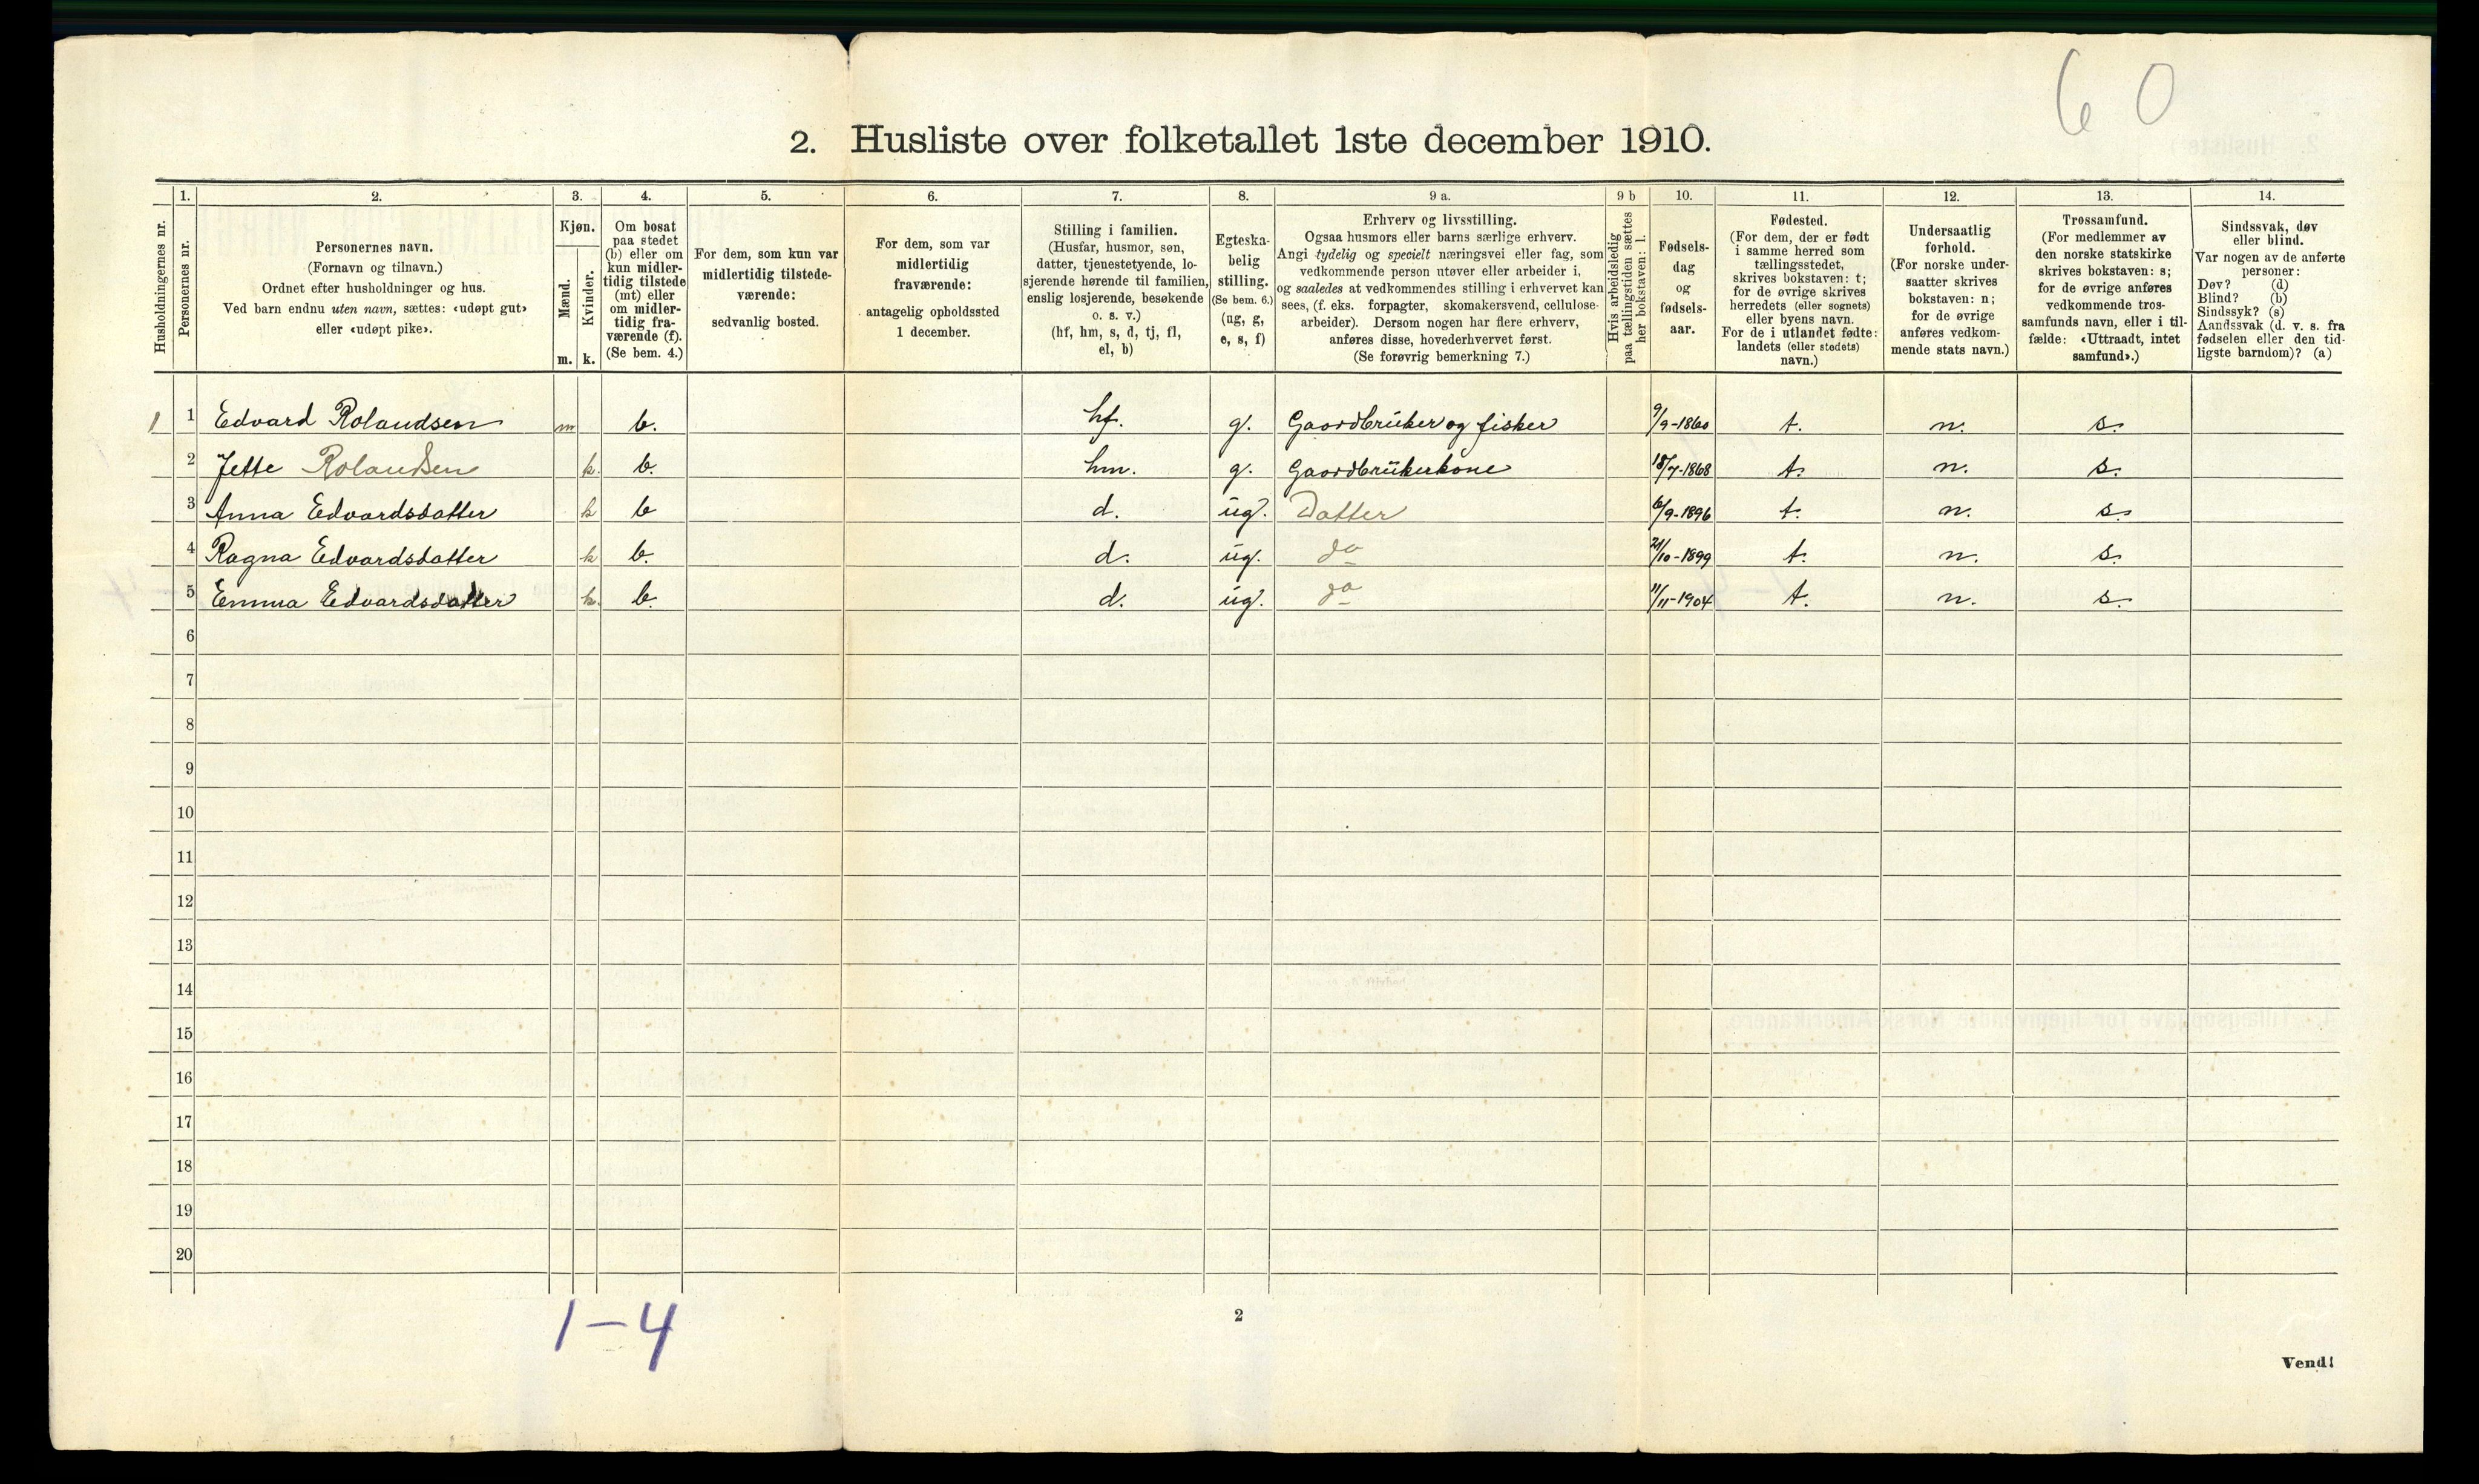 60
2. Husliste over folketallet 1ste december 1910.
Husholdningernes nr.
1. Personernes nr.
2. Personernes navn.
(Fornavn og tilnavn.)
Ordnet efter husholdninger og hus.
Ved barn endnu uten navn, sættes: «udøpt gut»
eller «udøpt pike».
3. Kjøn.
Mænd. m.
Kvinder. k.
4. Om bosat
paa stedet
(b) eller om
kun midler-
tidig tilstede
(mt) eller
om midler-
tidig fra-
værende (f).
(Se bem. 4.)
5. For dem, som kun var
midlertidig tilstede-
værende:
sedvanlig bosted.
6. For dem, som var
midlertidig
fraværende:
antagelig opholdssted
1 december.
7. Stilling i familien.
(Husfar, husmor, søn,
datter, tjenestetyende, lo-
sjerende hørende til familien,
enslig losjerende, besøkende
o. s. v.)
(hf, hm, s, d, tj, fl,
el, b)
8. Egteska-
belig
stilling.
(Se bem. 6.)
(ug, g,
e, s, f)
9 a. Erhverv og livsstilling.
Ogsaa husmors eller barns særlige erhverv.
Angi tydelig og specielt næringsvei eller fag, som
vedkommende person utøver eller arbeider i,
og saaledes at vedkommendes stilling i erhvervet kan
sees, (f. eks. forpagter, skomakersvend, cellulose-
arbeider). Dersom nogen har flere erhverv,
anføres disse, hovederhvervet først.
(Se forøvrig bemerkning 7.)
9 b Hvis arbeidsledig
paa tællingstiden sættes
her bokstaven: l.
10. Fødsels-
dag
og
fødsels-
aar.
11. Fødested.
(For dem, der er født
i samme herred som
tællingsstedet,
skrives bokstaven: t;
for de øvrige skrives
herredets (eller sognets)
eller byens navn.
For de i utlandet fødte:
landets (eller stedets)
navn.)
12. Undersaatlig
forhold.
(For norske under-
saatter skrives
bokstaven: n;
for de øvrige
anføres vedkom-
mende stats navn.)
13. Trossamfund.
(For medlemmer av
den norske statskirke
skrives bokstaven: s;
for de øvrige anføres
vedkommende tros-
samfunds navn, eller i til-
fælde: «Uttraadt, intet
samfund».)
14. Sindssvak, døv
eller blind.
Var nogen av de anførte
personer:
Døv? (d)
Blind? (b)
Sindssyk? (s)
Aandssvak (d. v. s. fra
fødselen eller den tid-
ligste barndom)? (a)
1 1 Edvard Rolandsen m b. hf. g. Gaardbruker og fisker 9/9-1860 t. n. s.
2 Jette Rolandsen k. b. hm. g. Gaardbrukerkone 18/7-1868 t. n. s.
3 Anna Edvardsdatter k b d. ug. Datter 6/9-1896 t. n. s.
4 Ragna Edvardsdatter k b. d. ug. do 21/10-1899 t. n. s.
5 Emma Edvardsdatter k. b. d. ug. do 11/11-1904 t. n. s.
6
7
8
9
10
11
12
13
14
15
16
17
18
19
20
1-4
2
Vend!